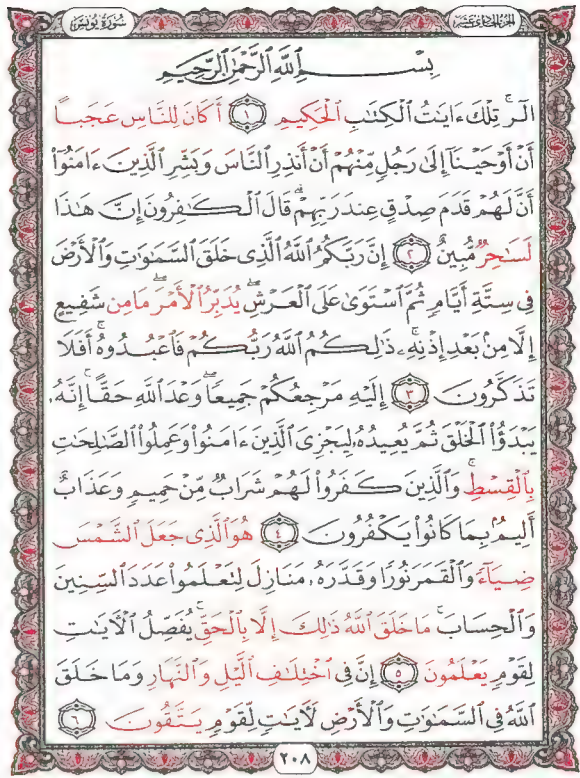 الجزء الحادي عشر
سورة يونس
بِسْمِ اللَّهِ الرَّحْمَٰنِ الرَّحِيمِ
الٓر ۚ تِلْكَ ءَايَٰتُ الْكِتَٰبِ الْحَكِيمِ ﴿١﴾ أَكَانَ لِلنَّاسِ عَجَبًا
أَنْ أَوْحَيْنَآ إِلَىٰ رَجُلٍ مِّنْهُمْ أَنْ أَنذِرِ النَّاسَ وَبَشِّرِ الَّذِينَ ءَامَنُوٓا۟
أَنَّ لَهُمْ قَدَمَ صِدْقٍ عِندَ رَبِّهِمْ ۗ قَالَ الْكَٰفِرُونَ إِنَّ هَٰذَا
لَسَٰحِرٌ مُّبِينٌ ﴿٢﴾ إِنَّ رَبَّكُمُ اللَّهُ الَّذِى خَلَقَ السَّمَٰوَٰتِ وَالْأَرْضَ
فِى سِتَّةِ أَيَّامٍ ثُمَّ اسْتَوَىٰ عَلَى الْعَرْشِ ۖ يُدَبِّرُ الْأَمْرَ ۖ مَا مِن شَفِيعٍ
إِلَّا مِنۢ بَعْدِ إِذْنِهِۦ ۚ ذَٰلِكُمُ اللَّهُ رَبُّكُمْ فَاعْبُدُوهُ ۚ أَفَلَا
تَذَكَّرُونَ ﴿٣﴾ إِلَيْهِ مَرْجِعُكُمْ جَمِيعًا ۖ وَعْدَ اللَّهِ حَقًّا ۚ إِنَّهُۥ
يَبْدَؤُا۟ الْخَلْقَ ثُمَّ يُعِيدُهُۥ لِيَجْزِىَ الَّذِينَ ءَامَنُوا۟ وَعَمِلُوا۟ الصَّٰلِحَٰتِ
بِالْقِسْطِ ۚ وَالَّذِينَ كَفَرُوا۟ لَهُمْ شَرَابٌ مِّنْ حَمِيمٍ وَعَذَابٌ
أَلِيمٌۢ بِمَا كَانُوا۟ يَكْفُرُونَ ﴿٤﴾ هُوَ الَّذِى جَعَلَ الشَّمْسَ
ضِيَآءً وَالْقَمَرَ نُورًا وَقَدَّرَهُۥ مَنَازِلَ لِتَعْلَمُوا۟ عَدَدَ السِّنِينَ
وَالْحِسَابَ ۚ مَا خَلَقَ اللَّهُ ذَٰلِكَ إِلَّا بِالْحَقِّ ۚ يُفَصِّلُ الْأَيَٰتِ
لِقَوْمٍ يَعْلَمُونَ ﴿٥﴾ إِنَّ فِى اخْتِلَٰفِ الَّيْلِ وَالنَّهَارِ وَمَا خَلَقَ
اللَّهُ فِى السَّمَٰوَٰتِ وَالْأَرْضِ لَأَيَٰتٍ لِّقَوْمٍ يَتَّقُونَ ﴿٦﴾
٢٠٨